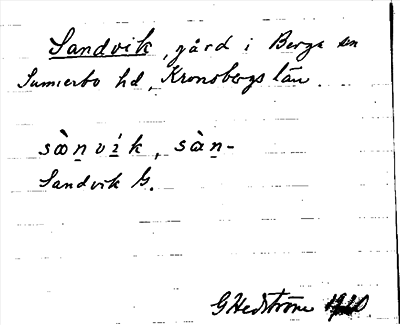 Sandvik, gård i Berga sn
Sunnerbo hd, Kronobergs län.
sànvik, sàn-
Sandvik G.
G Hedström 1910